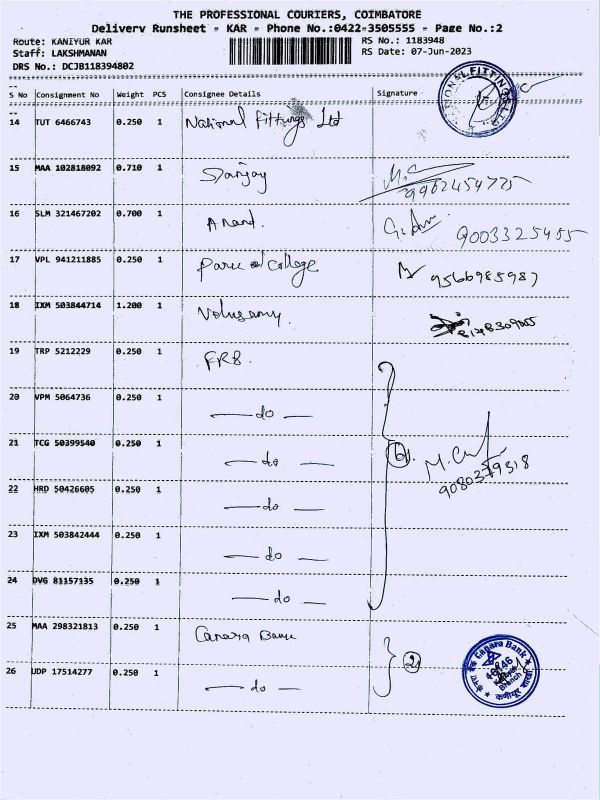 THE PROFESSIONAL COURIERS, COIMBATORE
Delivery Runsheet - KAR - Phone No.:0422-3505555 - Page No.:2
Route: KANIYUR KAR RS No.: 1183948
Staff: LAKSHMANAN RS Date: 07-Jun-2023
DRS No.: DCJB118394802
S No Consignment No Weight PCS Consignee Details Signature
14 TUT 6466743 0.250 1 National Fittings Ltd
15 MAA 102818092 0.710 1 Sanjay
9962454775
16 SLM 321467202 0.700 1 Anand. 9003325455
17 VPL 941211885 0.250 1 Park College 9566985987
18 IXM 503844714 1.200 1
8148309005
19 TRP 5212229 0.250 1
20 VPM 5064736 0.250 1 — do —
21 TCG 50399540 0.250 1 — do — 6
9080379318
22 HRD 50426605 0.250 1 — do —
23 IXM 503842444 0.250 1 — do —
24 DVG 81157135 0.250 1 — do —
25 MAA 298321813 0.250 1 Canara Bank
Canara Bank
Branch
26 UDP 17514277 0.250 1 — do — 2